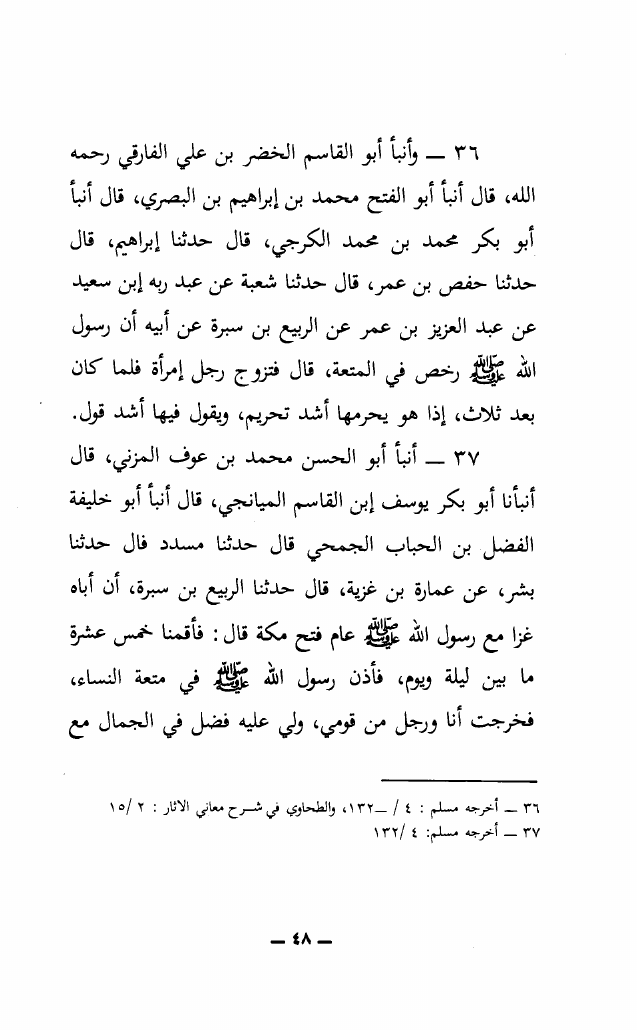 ٣٦ — وأنبأ أبو القاسم الخضر بن علي الفارقي رحمه
الله، قال أنبأ أبو الفتح محمد بن إبراهيم بن البصري، قال أنبأ
أبو بكر محمد بن محمد الكرجي، قال حدثنا إبراهيم، قال
حدثنا حفص بن عمر، قال حدثنا شعبة عن عبد ربه إبن سعيد
عن عبد العزيز بن عمر عن الربيع بن سبرة عن أبيه أن رسول
الله ﷺ رخص في المتعة، قال فتزوج رجل إمرأة فلما كان
بعد ثلاث، إذا هو يحرمها أشد تحريم، ويقول فيها أشد قول.
٣٧ — أنبأ أبو الحسن محمد بن عوف المزني، قال
أنبأنا أبو بكر يوسف إبن القاسم الميانجي، قال أنبأ أبو خليفة
الفضل بن الحباب الجمحي قال حدثنا مسدد فال حدثنا
بشر، عن عمارة بن غزية، قال حدثنا الربيع بن سبرة، أن أباه
غزا مع رسول الله ﷺ عام فتح مكة قال: فأقمنا خمس عشرة
ما بين ليلة ويوم، فأذن رسول الله ﷺ في متعة النساء،
فخرجت أنا ورجل من قومي، ولي عليه فضل في الجمال مع
٣٦ — أخرجه مسلم : ٤ / —١٣٢، والطحاوي في شرح معاني الاثار : ٢ /١٥
٣٧ — أخرجه مسلم: ٤ /١٣٢
— ٤٨ —